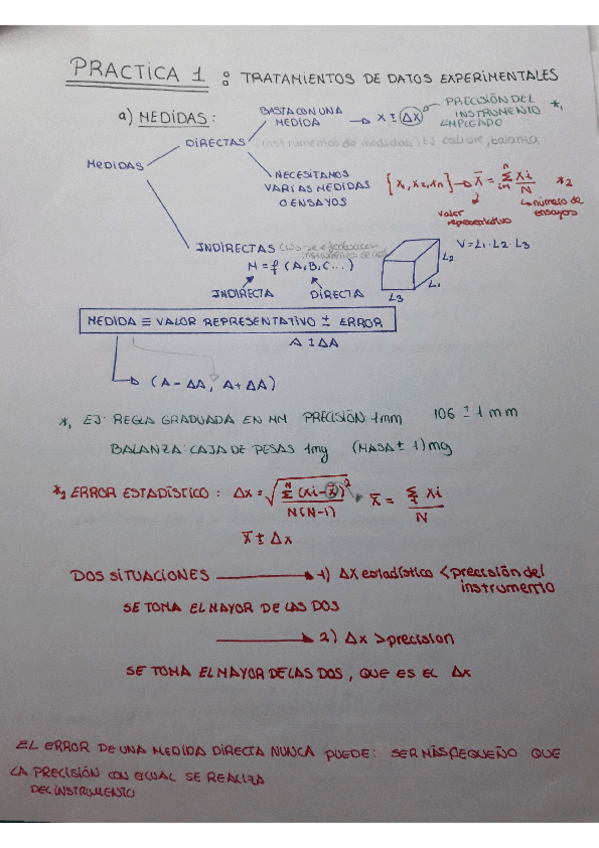 PRACTICA 1 : TRATAMIENTOS DE DATOS EXPERIMENTALES
a) MEDIDAS:
MEDIDAS
DIRECTAS
BASTA CON UNA MEDIDA → x ± Δx
PRECISIÓN DEL INSTRUMENTO EMPLEADO *1
instrumentos de medidas, EJ. calibre, balanza
NECESITAMOS VARIAS MEDIDAS O ENSAYOS
{x1, x2, xn} → x̄ = Σ(i=1, n) xi / N *2
valor representativo
número de ensayos
INDIRECTAS
M = f (A, B, C...)
INDIRECTA DIRECTA
V = L1 · L2 · L3
L2
L1
L3
MEDIDA ≡ VALOR REPRESENTATIVO ± ERROR
A ± ΔA
(A - ΔA, A + ΔA)
*1 EJ: REGLA GRADUADA EN MM PRECISIÓN: 1mm 106 ± 1 mm
BALANZA: CAJA DE PESAS 1mg (MASA ± 1) mg
*2 ERROR ESTADÍSTICO : Δx = √(Σ(N) (xi - x̄)² / N(N-1)) x̄ = Σ xi / N
x̄ ± Δx
DOS SITUACIONES → 1) Δx estadístico < precisión del instrumento
SE TOMA EL MAYOR DE LAS DOS
→ 2) Δx > precision
SE TOMA EL MAYOR DE LAS DOS, QUE ES EL Δx
EL ERROR DE UNA MEDIDA DIRECTA NUNCA PUEDE: SER MÁS PEQUEÑO QUE
LA PRECISIÓN CON SE REALIZA
DEL INSTRUMENTO